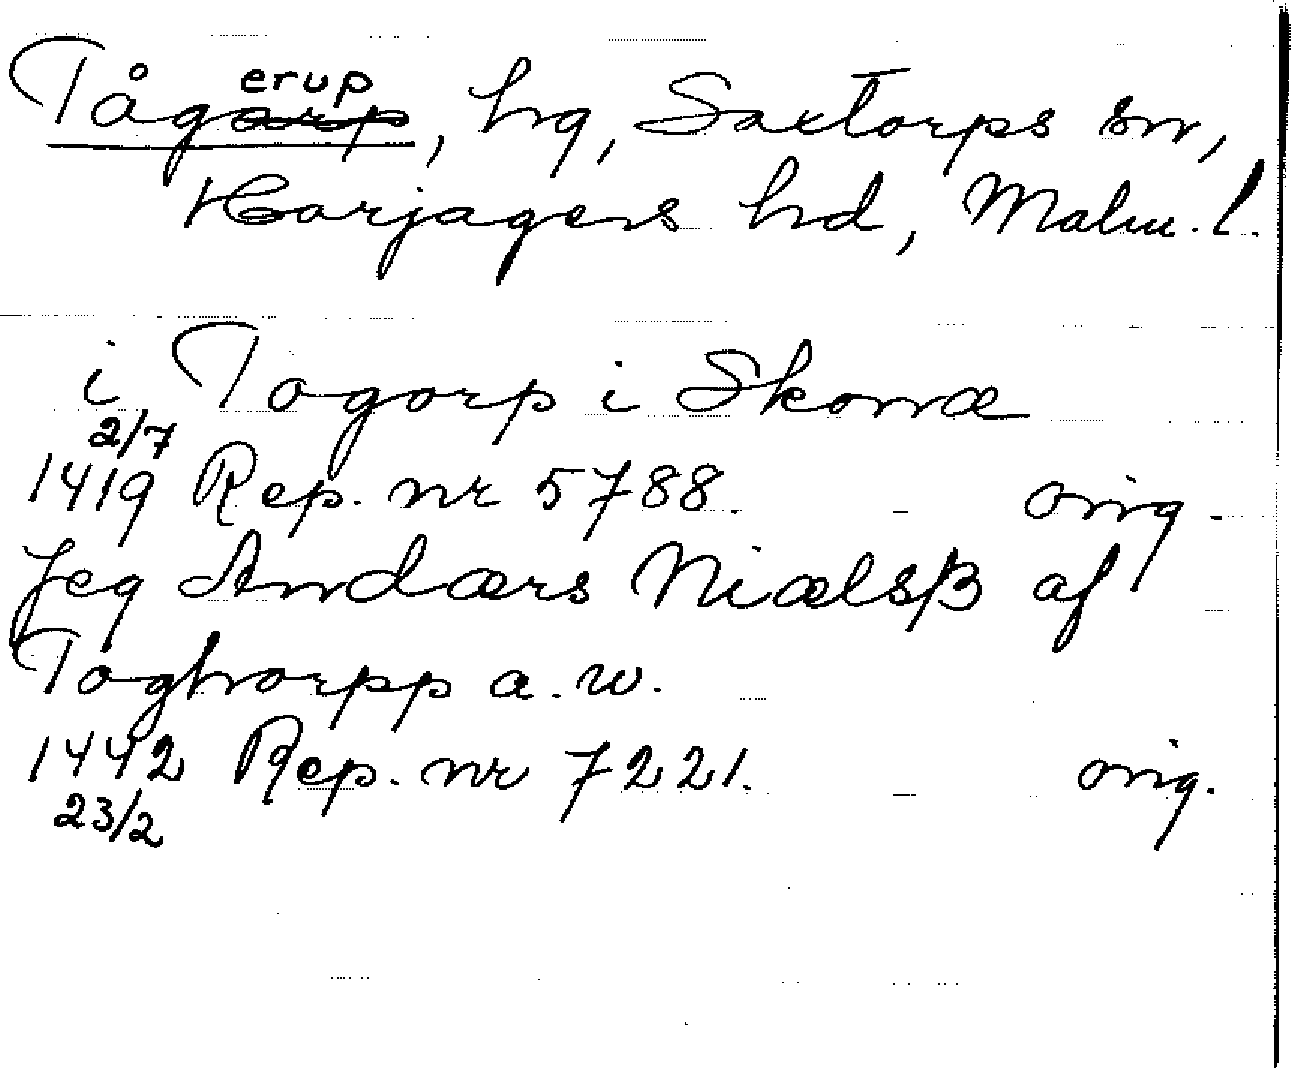 Tågerup, hg, Saxtorps sn,
Harjagers hd, Malm. l.
i Togorp i Skonæ
2/7
1419 Rep. nr 5788. orig.
Jeg Andærs Niælsß af
Toghorpp a. w.
1442 Rep. nr 7221. orig.
23/2